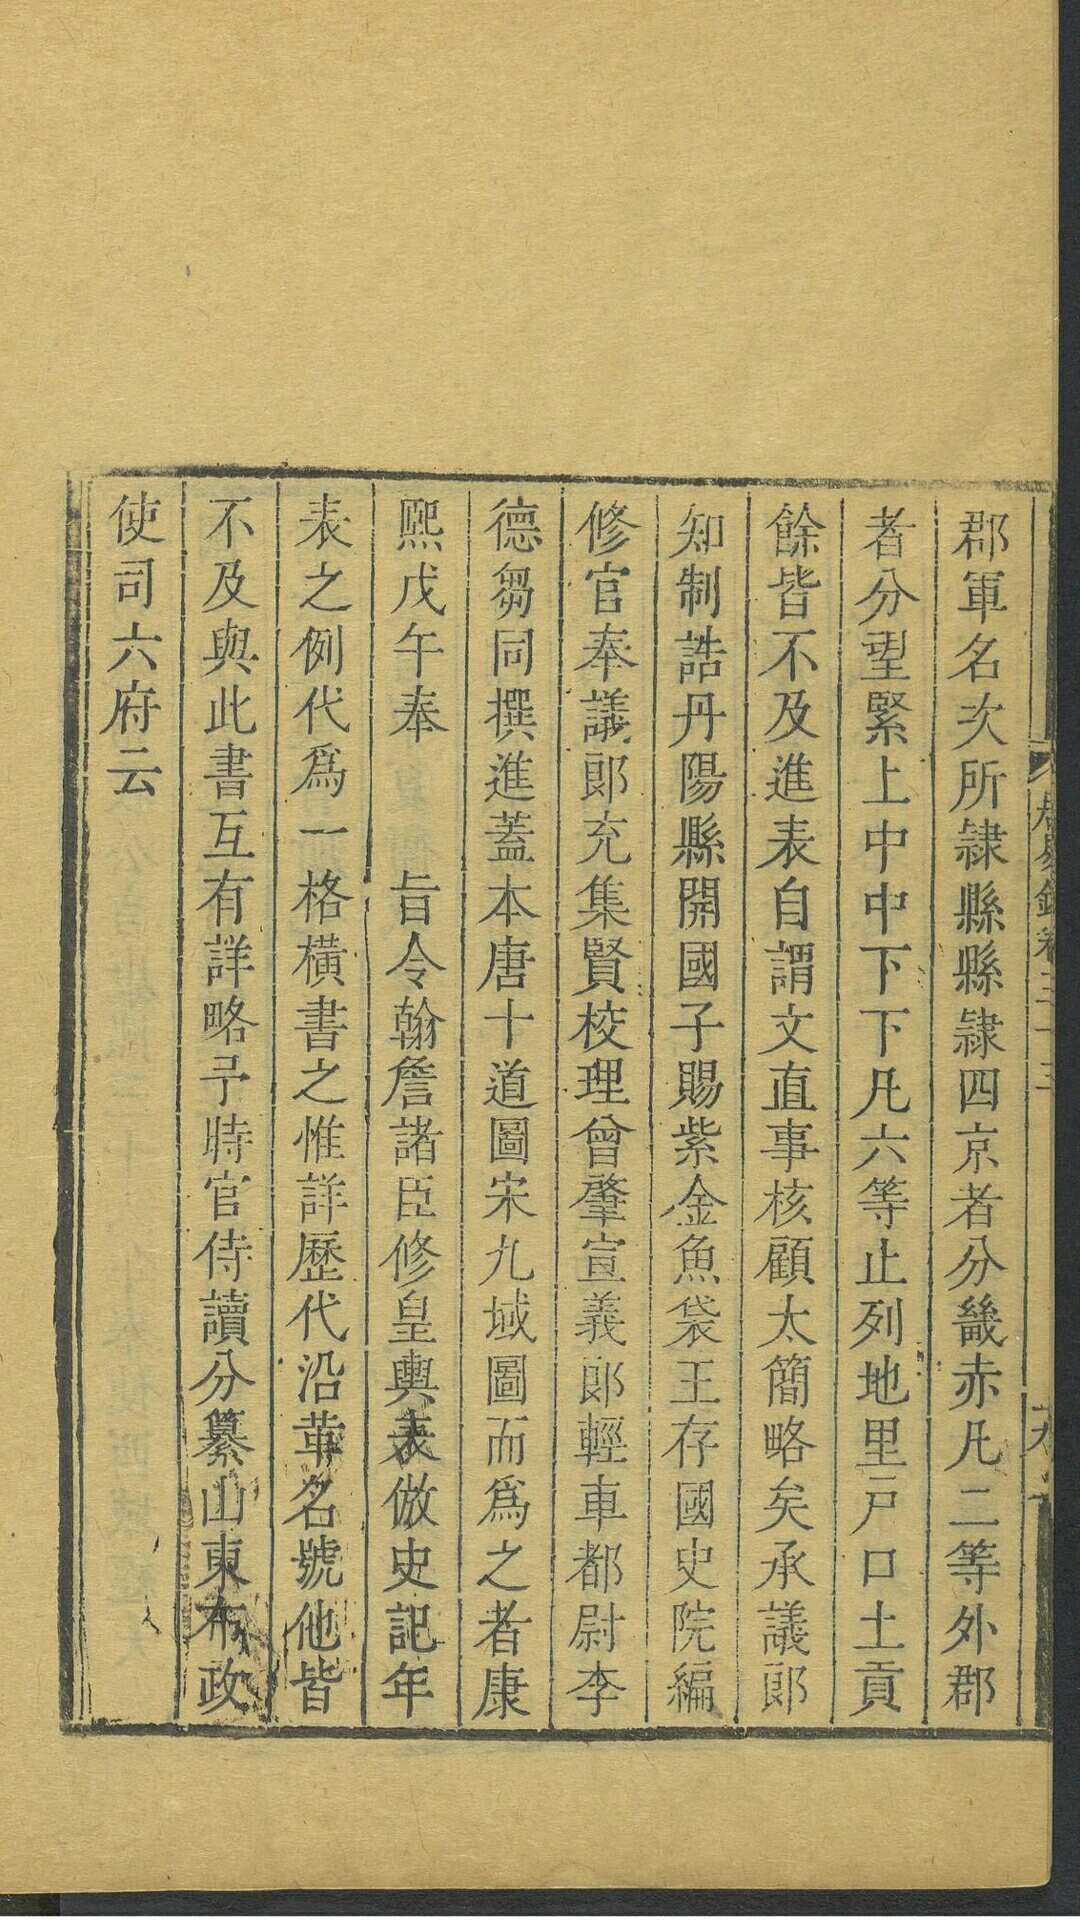 郡軍名次所隸縣縣隸四京者分畿赤凡二等外郡
者分望緊上中中下下凡六等止列地里戸口土貢
餘皆不及進表自謂文直事核顧太簡略矣承議郎
知制誥丹陽縣開國子賜紫金魚袋王存國史院編
修官奉議郎充集賢校理曾肇宣義郎輕車都尉李
德芻同撰進蓋本唐十道圖宋九域圖而爲之者康
熙戊午奉　旨令翰詹諸臣修皇輿表倣史記年
表之例代爲一格橫書之惟詳歷代沿革名號他皆
不及與此書互有詳略予時官侍讀分纂山東布政
使司六府云